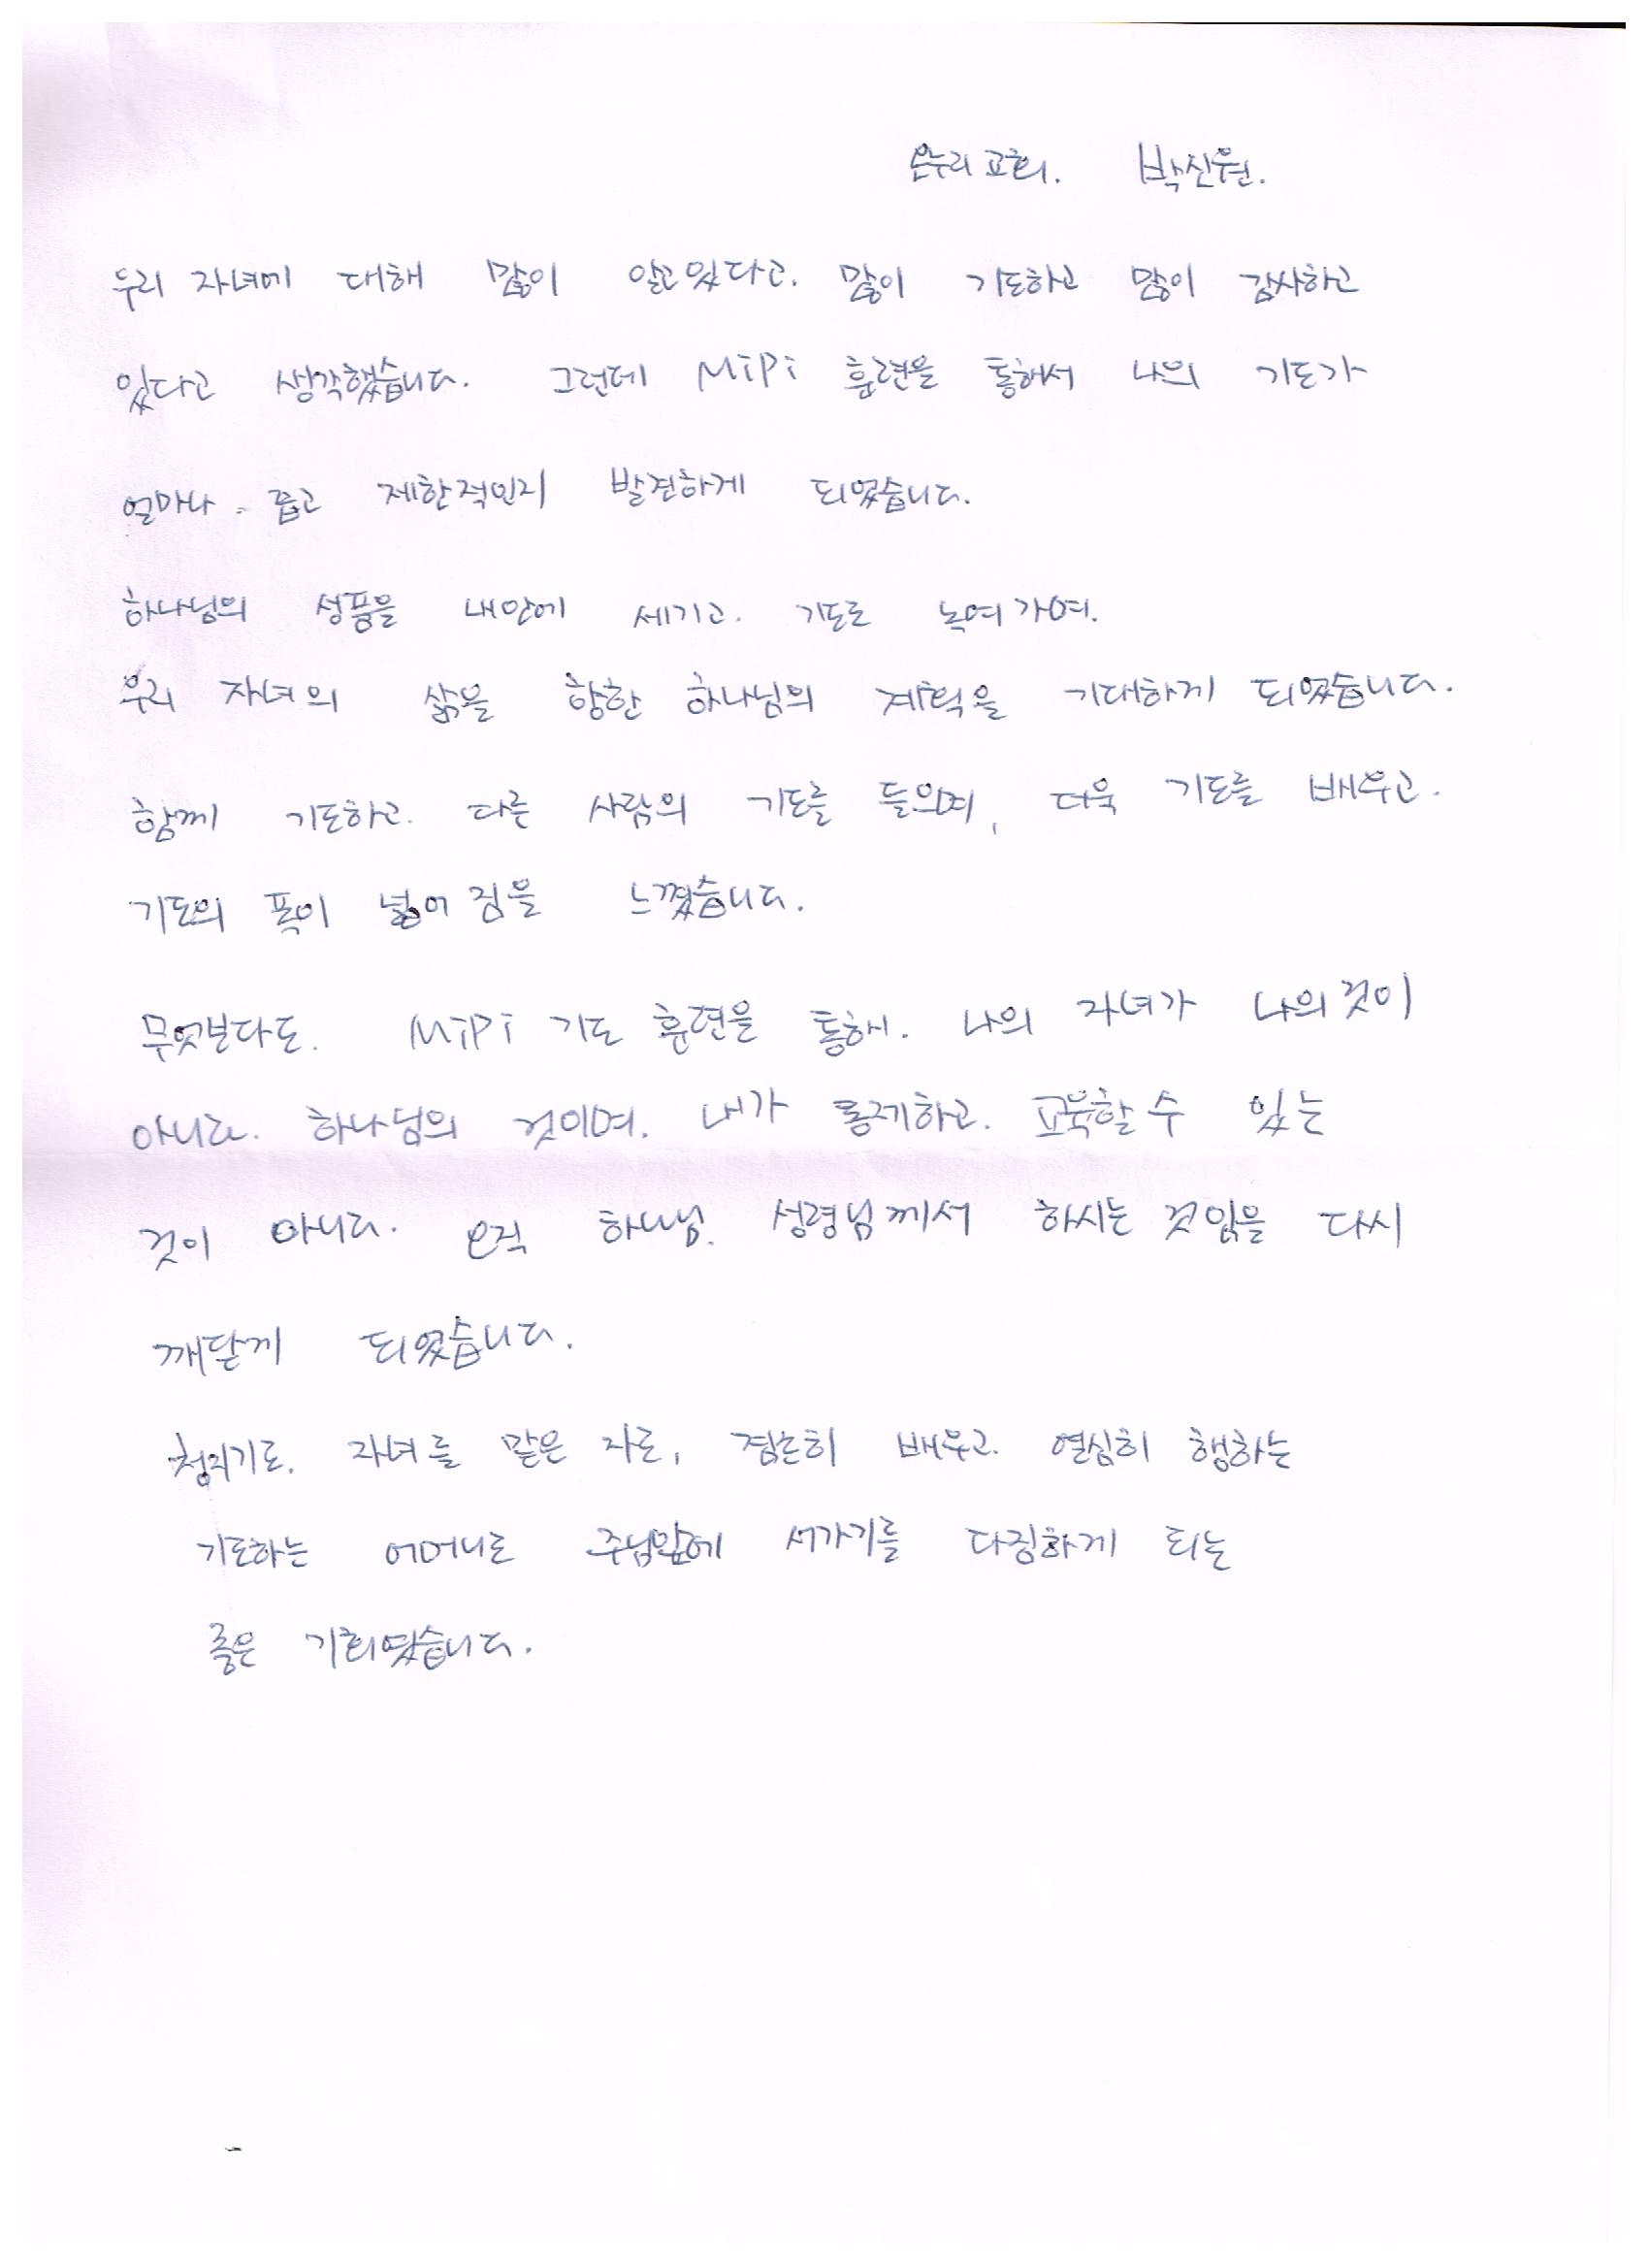 온누리 교회. 박신원.
우리 자녀에 대해 많이 알고있다고. 많이 기도하고 많이 감사하고
있다고 생각했습니다. 그런데 MiPi 훈련을 통해서 나의 기도가
얼마나 좁고 제한적인지 발견하게 되었습니다.
하나님의 성품을 내안에 세기고. 기도로 녹여가며.
우리 자녀의 삶을 향한 하나님의 계획을 기대하게 되었습니다.
함께 기도하고. 다른 사람의 기도를 들으며, 더욱 기도를 배우고.
기도의 폭이 넓어 짐을 느꼈습니다.
무엇보다도. MiPi 기도 훈련을 통해. 나의 자녀가 나의것이
아니라. 하나님의 것이며. 내가 통제하고. 교육할수 있는
것이 아니라. 오직 하나님. 성령님께서 하시는 것임을 다시
깨닫게 되었습니다.
청지기로. 자녀를 맡은 자로, 겸손히 배우고. 열심히 행하는
기도하는 어머니로 주님앞에 서가기를 다짐하게 되는
좋은 기회였습니다.